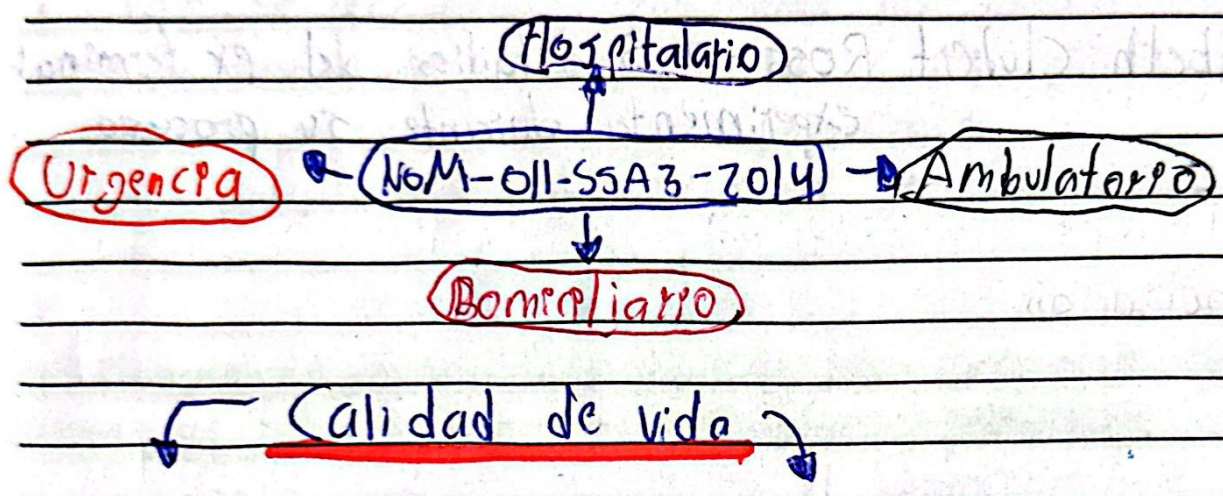 Hospitalario
Urgencia NOM-011-SSA3-2014 Ambulatorio
Domiciliario
Calidad de vida